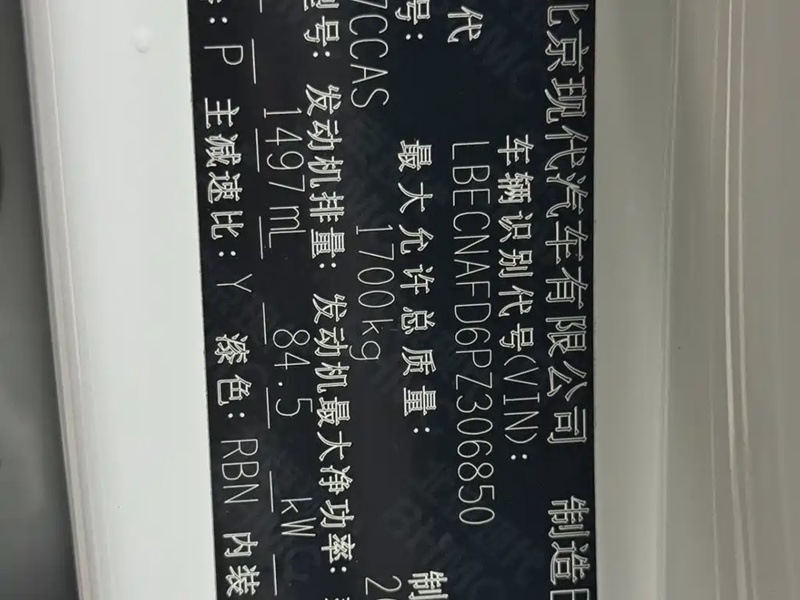 北京现代汽车有限公司 制造
车辆识别代号(VIN):
LBECNAFD6PZ306850
代
号: 最大允许总质量: 制
7CCAS 1700kg 2
型号: 发动机排量: 发动机最大净功率:
1497mL 84.5 kW
: P 主减速比: Y 漆色: RBN 内装